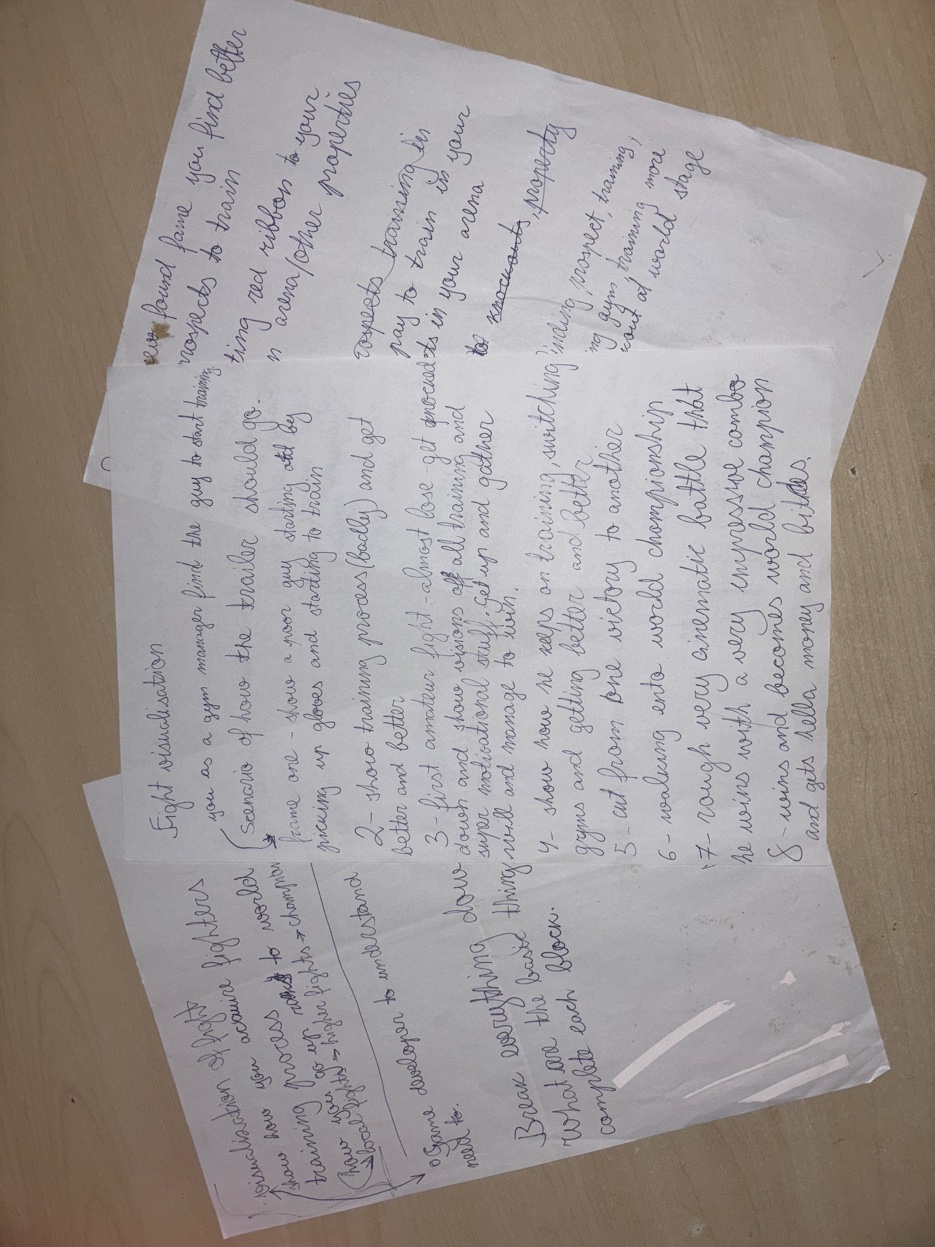 visualisation of fight
show how you acquire fighters
training process
go up ranks to world
(how you
local fights → higher fights → champion
Game developer to understand
need to.
Break everything down
What are the basic things
complete each block.
Fight visualisation
you as a gym manager find the guy to start training
(Scenario of how the trailer should go.
frame one - show a poor guy starting by
picking up gloves and starting to train
2 - show training process (badly) and get
better and better
3 - first amateur fight - almost lose get knocked
down and show visions off all training and
super motivational stuff, get up and gather
will and manage to win.
4 - show how he keeps on training, switching
gyms and getting better and better
5 - cut from one victory to another
6 - walking into world championship
7 - rough very cinematic battle that
he wins with a very impressive combo
8 - wins and becomes world champion
and gets hella money and bitches.
new found fame you find better
rospects to train
ting red ribbon to your
n arena/other properties
rospects training in
pay to train in your
ts in your arena
to knockouts, property
inding prospect, training,
ng gym training more
kout at world stage